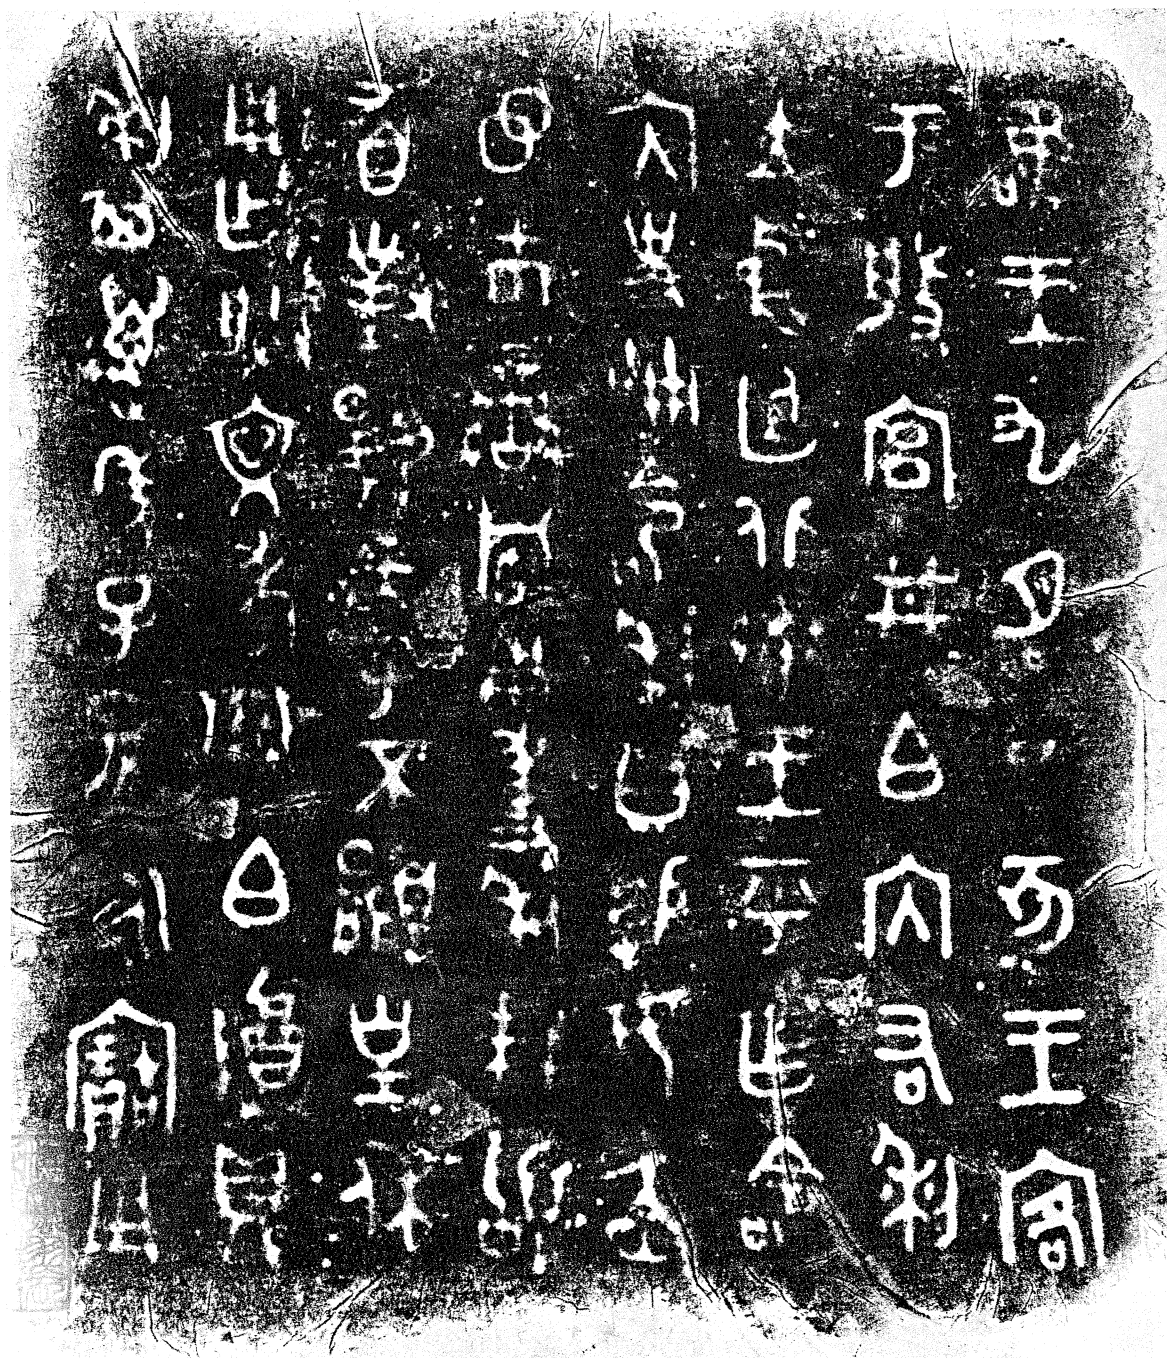 唯王九月丁亥王客
于般宮井白內右利
立中廷北鄉王乎乍命
內史冊命利曰易女赤
巿䜌旂用事利拜𩒨
首對揚天子不顯皇休
用乍朕文考白尊鼎
利其萬年子孫永寶用